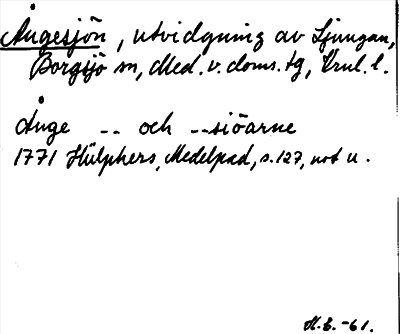 Ångesjön, utvidgning av Ljungan,
Borgsjö sn, Med. v. doms. tg, Vnl. l.
Ånge -- och --siöarne
1771 Hülphers, Medelpad, s. 127, not u.
H.E. -61.